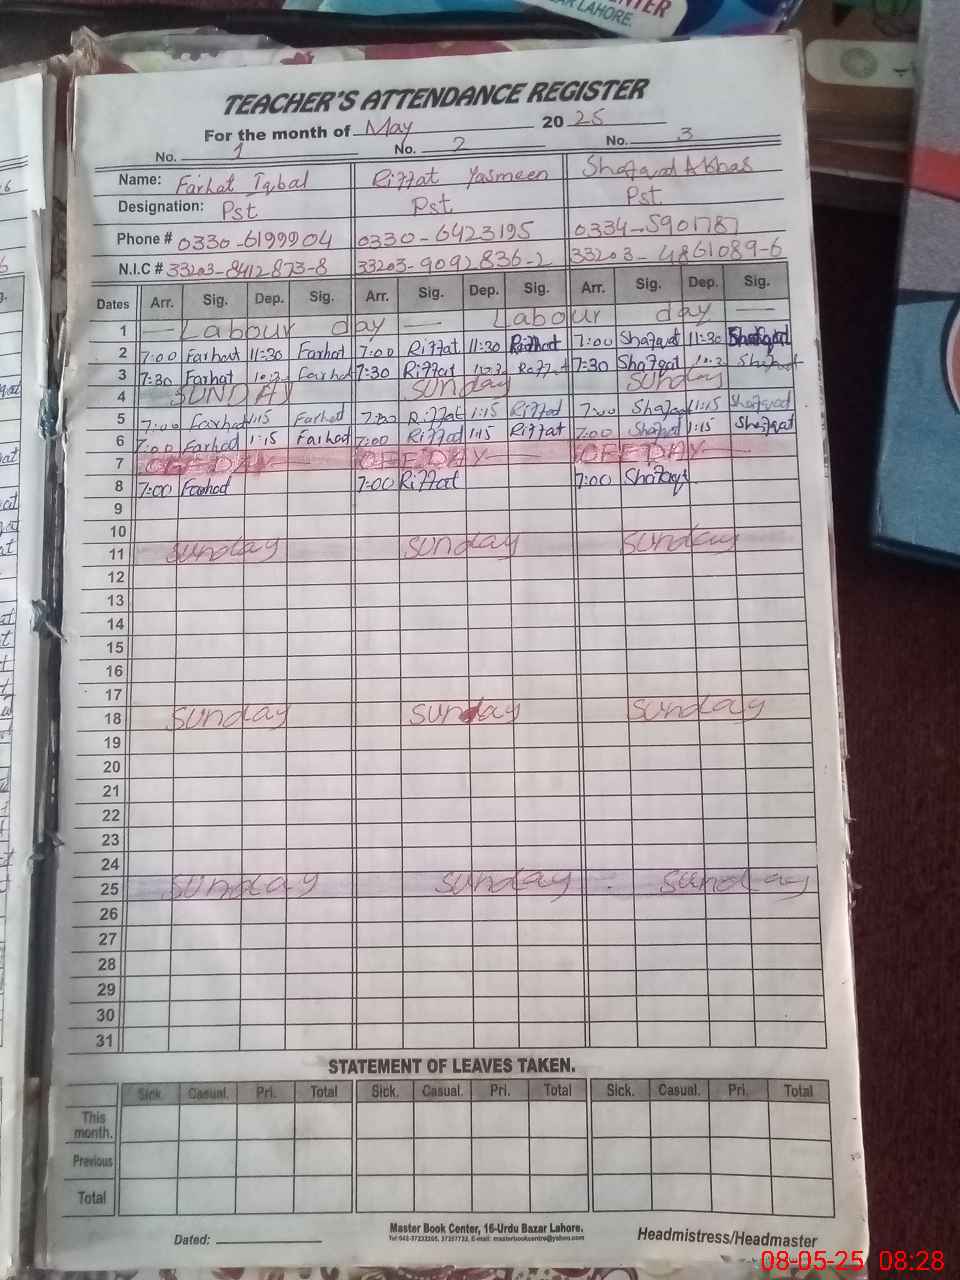 NTER
AR LAHORE.
TEACHER'S ATTENDANCE REGISTER
For the month of May 2025
No. 1 No. 2 No. 3
Name: Farhat Iqbal Riffat Yasmeen
Designation: Pst Pst Pst
Phone # 0330-6199904 0330-6423195 0334-5901787
N.I.C # 33203-8412873-8 33203-9092836-2 33203-4861089-6
Dates Arr. Sig. Dep. Sig. Arr. Sig. Dep. Sig. Arr. Sig. Dep. Sig.
1 — Labour day — Labour day —
2 7:00 Farhat 11:30 Farhat 7:00 Riffat 11:30 Riffat 7:00 Shafqat 11:30 Shafqat
3 7:30 Farhat Farhat 7:30 Riffat Riffat 7:30 Shafqat Shafqat
4 SUNDAY sunday sunday
5 7:00 Farhad 1:15 Farhad 7:00 Riffat 1:15 Riffad 7:00 Shafqad 1:15 Shafqad
6 7:00 Farhad 1:15 Farhad 7:00 Riffad 1:15 Riffat 7:00 Shafqat 1:15 Shafqat
7 OFF DAY — OFF DAY — OFF DAY —
8 7:00 Farhad 7:00 Riffat 7:00 Shafqat
9
10
11 sunday sunday sunday
12
13
14
15
16
17
18 sunday sunday sunday
19
20
21
22
23
24
25 sunday sunday sunday
26
27
28
29
30
31
STATEMENT OF LEAVES TAKEN.
Sick. Casual. Pri. Total Sick. Casual. Pri. Total Sick. Casual. Pri. Total
This month.
Previous
Total
Dated:
Master Book Center, 16-Urdu Bazar Lahore.
Headmistress/Headmaster
08-05-25 08:28